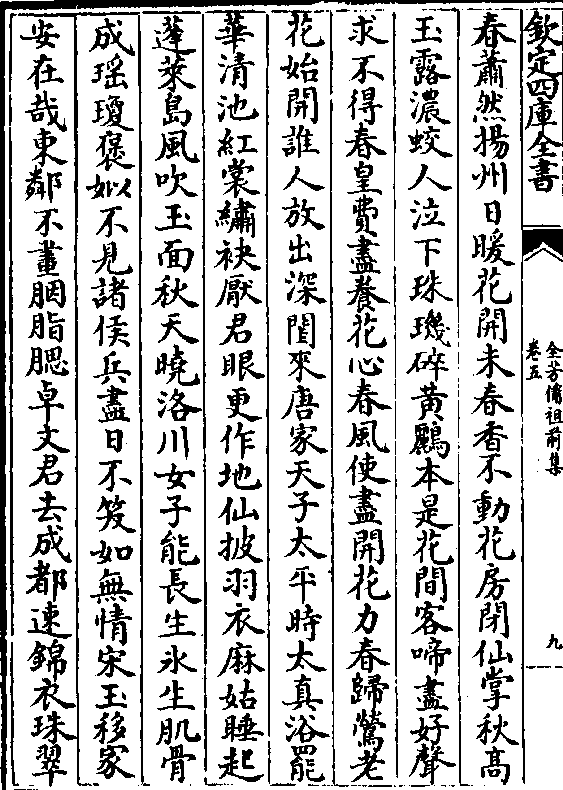 欽定四庫全書
全芳備祖前集
卷五
九
春蕭然揚州日暖花開未春香不動花房閉仙掌秋高
玉露濃蛟人泣下珠璣碎黃鸝本是花間客啼盡好聲
求不得春皇費盡養花心春風使盡開花力春歸鶯老
花始開誰人放出深閨來唐家天子太平時太真浴罷
華清池紅裳繡袂厭君眼更作地仙披羽衣麻姑睡起
蓬萊島風吹玉面秋天曉洛川女子能長生氷生肌骨
成瑶瓊褒姒不見諸侯兵盡日不笑如無情宋玉移家
安在哉東鄰不畫胭脂腮卓文君去成都速錦衣珠翠